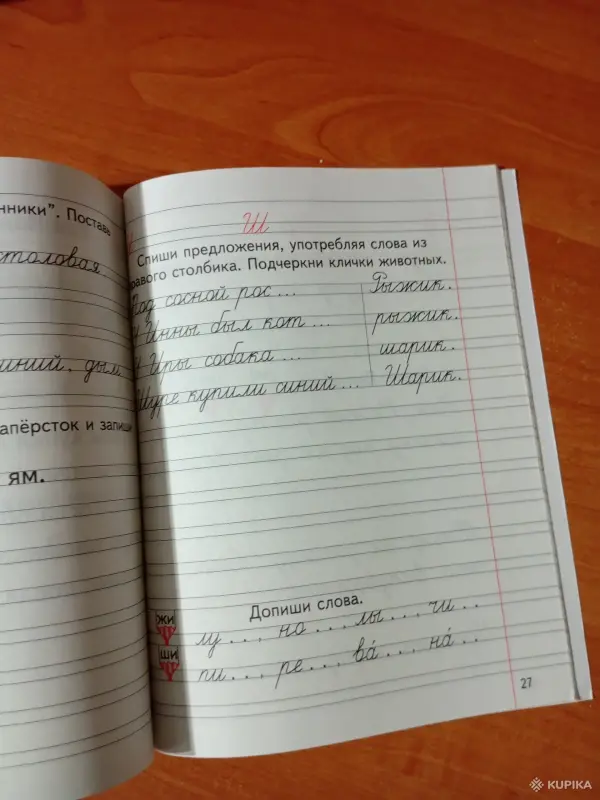 нники". Поставь
столовая
иний. дым
апёрсток и запиши
ям.
Ш
Спиши предложения, употребляя слова из
правого столбика. Подчеркни клички животных.
Под сосной рос ... Рыжик.
У Инны был кот ... рыжик.
У Иры собака ... шарик.
Шуре купили синий ... Шарик.
Допиши слова.
жи
лу... но... лы... чи...
ши
пи... ре... ва́... на́...
27
KUPIKA